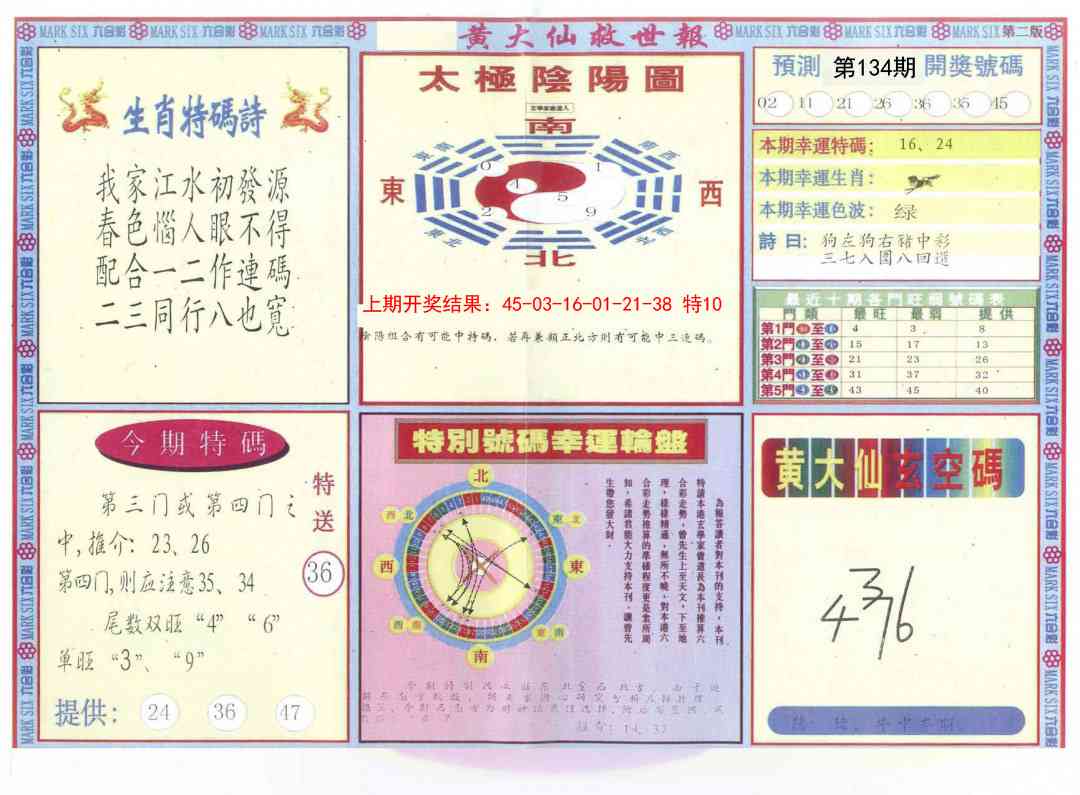 MARK SIX 六合彩 MARK SIX 六合彩 MARK SIX 六合彩 黄大仙救世報 MARK SIX 六合彩 MARK SIX 六合彩 MARK SIX 第二版
生肖特碼詩
我家江水初發源
春色惱人眼不得
配合一二作連碼
二三同行八也寬
太極陰陽圖
南
東南
西南
東
西
0
1
4
5
2
9
東北
北
上期开奖结果：45-03-16-01-21-38 特10
陰陽組合有可能中特碼，若再兼顧正北方則有可能中三連碼。
預測 第134期 開獎號碼
02 11 21 26 36 35 45
本期幸運特碼： 16、24
本期幸運生肖：
本期幸運色波： 绿
詩曰：狗左狗右豬中彩
三七入圍八回選
最近十期各門旺弱號碼表
門類 最旺 最弱 提供
第1門 至 4 3 8
第2門 至 15 17 13
第3門 至 21 23 26
第4門 至 31 37 32
第5門 至 43 45 40
今期特碼
特送
36
第三门或第四门之
中,推介：23、26
第四门,则应注意35、34
尾数双旺“4” “6”
单旺“3”、“9”
提供： 24 36 47
特別號碼幸運輪盤
北
西北
東北
西
東
西南
東南
南
為報答讀者對本刊的支持，本刊
特請本港玄學家曾道長為本刊推算六
合彩走勢，曾先生上至天文，下至地
理，樣樣精通，無所不曉，對本港六
合彩走勢推算的準確程度更是眾所周
知，希諸君能大力支持本刊，讓曾先
生帶您發大財．
黄大仙玄空碼
4376